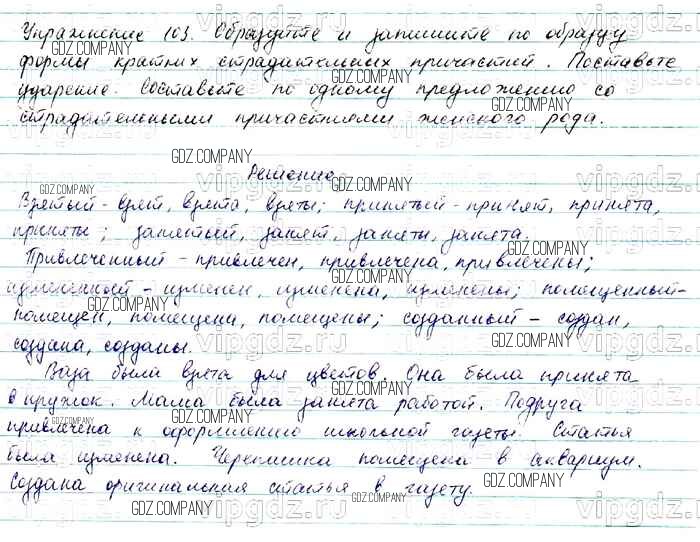 Упражнение 103. Образуйте и запишите по образцу
формы кратких страдательных причастий. Поставьте
ударение. Составьте по одному предложению со
страдательными причастиями женского рода.
Решение
Взятый - взят, взята, взяты; принятый - принят, принята,
приняты; занятый, занят, заняты, занята.
Привлеченный - привлечен, привлечена, привлечены;
измененный - изменен, изменена, изменены; помещенный -
помещен, помещена, помещены; созданный - создан,
создана, созданы.
Ваза была взята для цветов. Она была принята
в кружок. Мама была занята работой. Подруга
привлечена к оформлению школьной газеты. Статья
была изменена. Черепашка помещена в аквариум.
Создана оригинальная статья в газету.
GDZ.COMPANY
vipgdz.ru